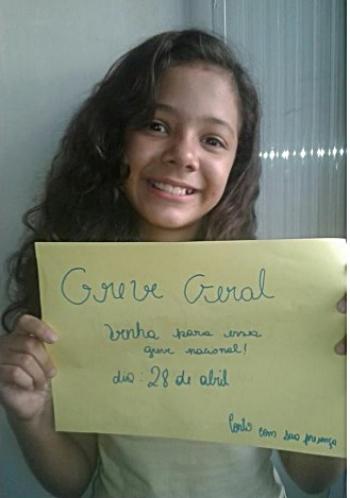 Greve Geral
Venha para essa
greve nacional!
dia: 28 de abril
Conto com sua presença